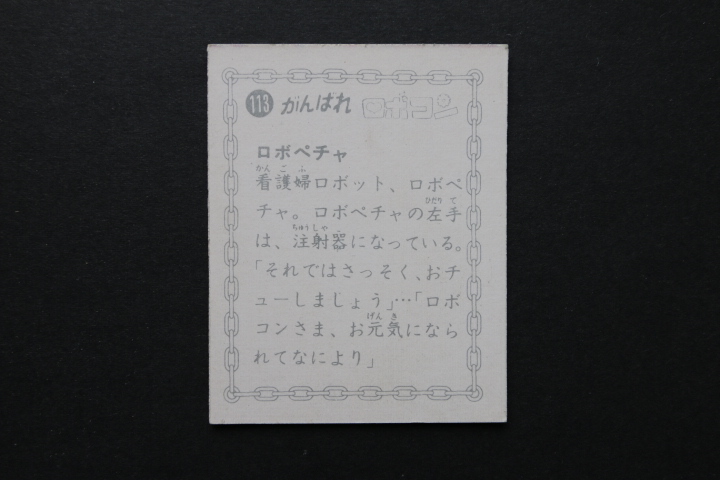 113 がんばれ ロボコン
ロボペチャ
看護婦ロボット、ロボペ
チャ。ロボペチャの左手
は、注射器になっている。
「それではさっそく、おチ
ューしましょう」…「ロボ
コンさま、お元気になら
れてなにより」